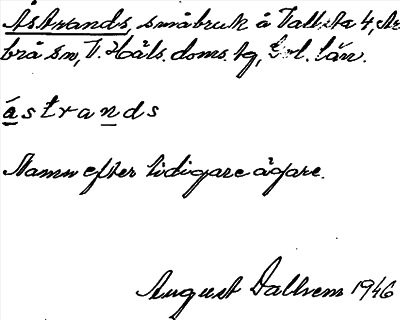 Åstrands, småbruk å Vallsta 4, Ar
brå sn, V. Häls. doms. tg, län.
åstrands
Namn efter tidigare ägare.
August Dallrem 1946